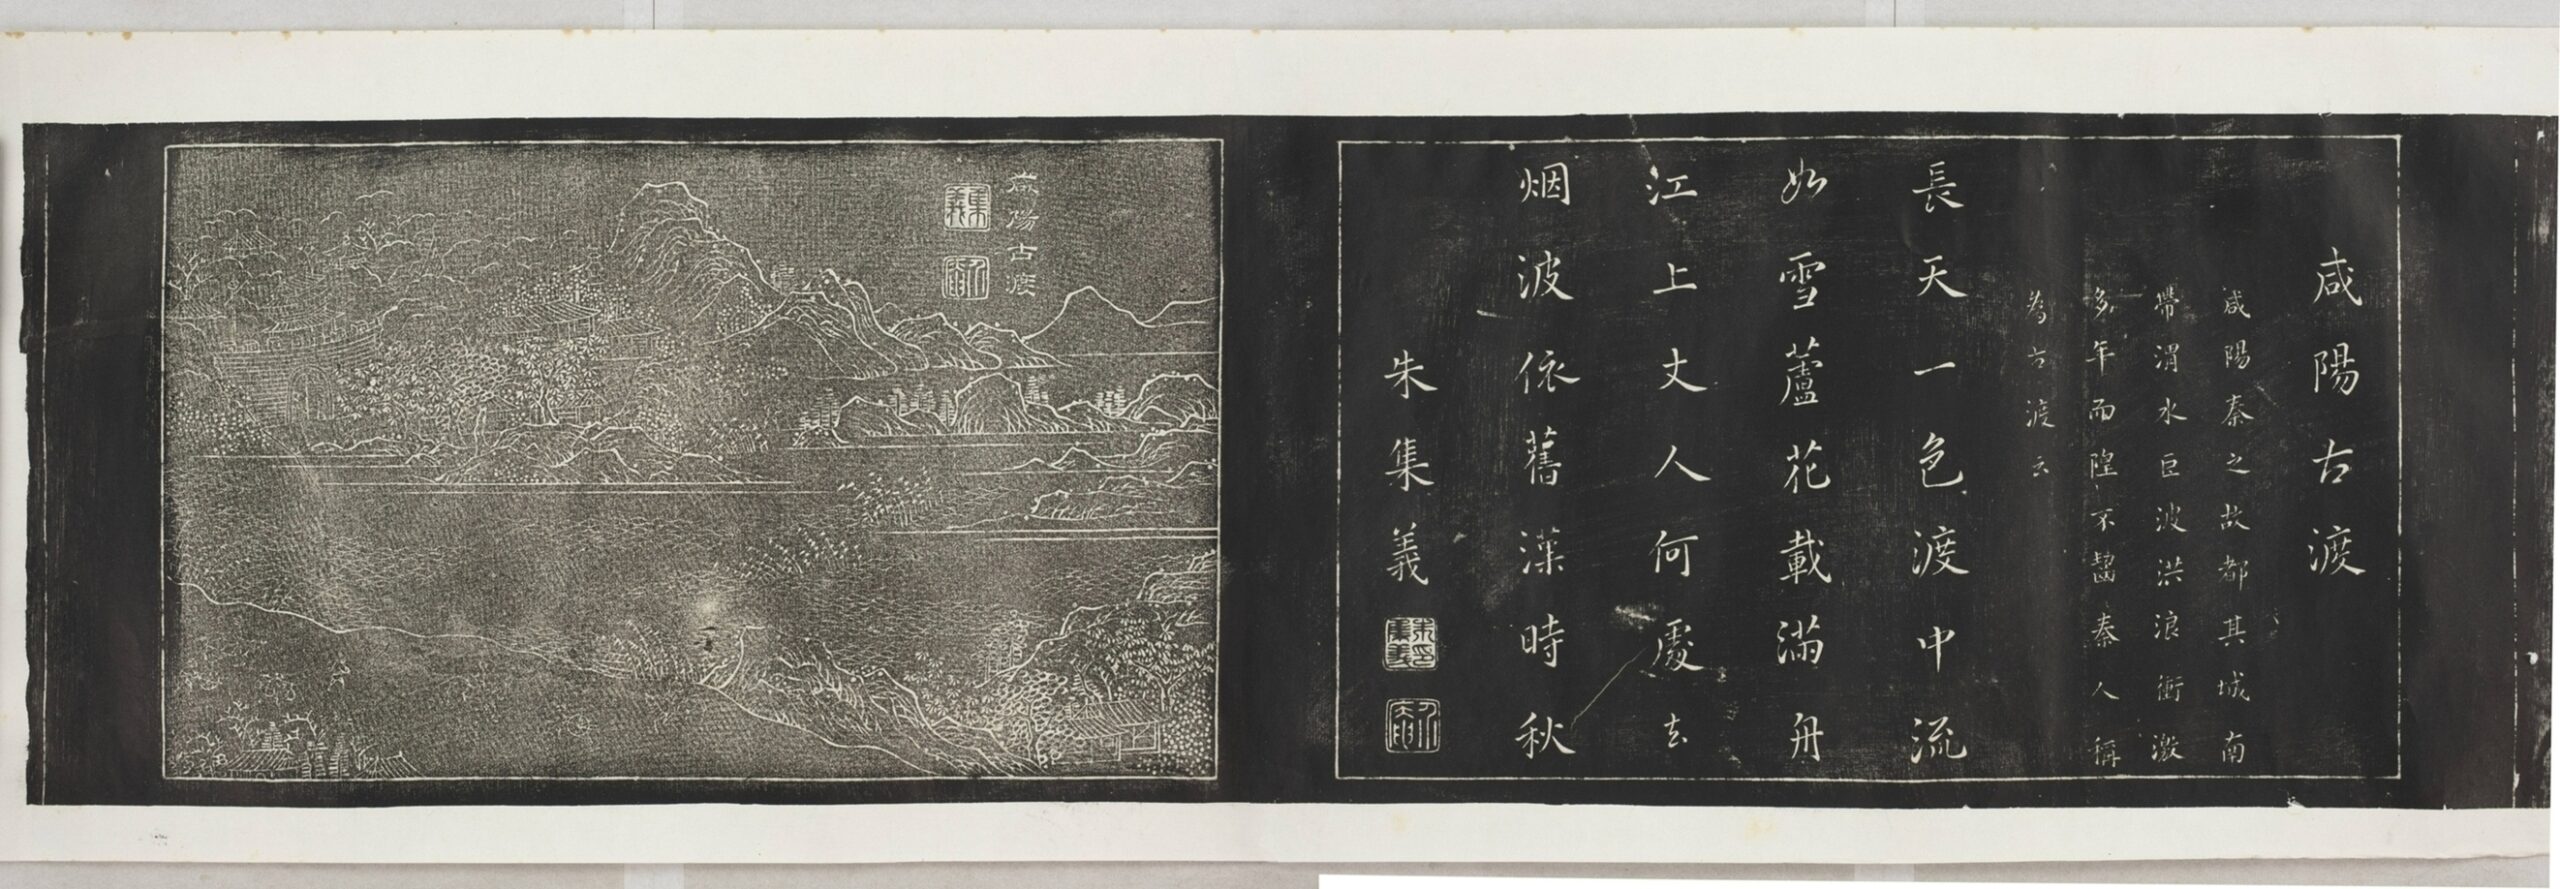 咸陽古渡
咸陽秦之故都其城南
帶渭水巨波洪浪衝激
多年而隍不齧秦人稱
為古渡云
長天一色渡中流
如雪蘆花載滿舟
江上丈人何處去
烟波依舊漢時秋
朱集義
朱印集義
咸陽古渡
集義